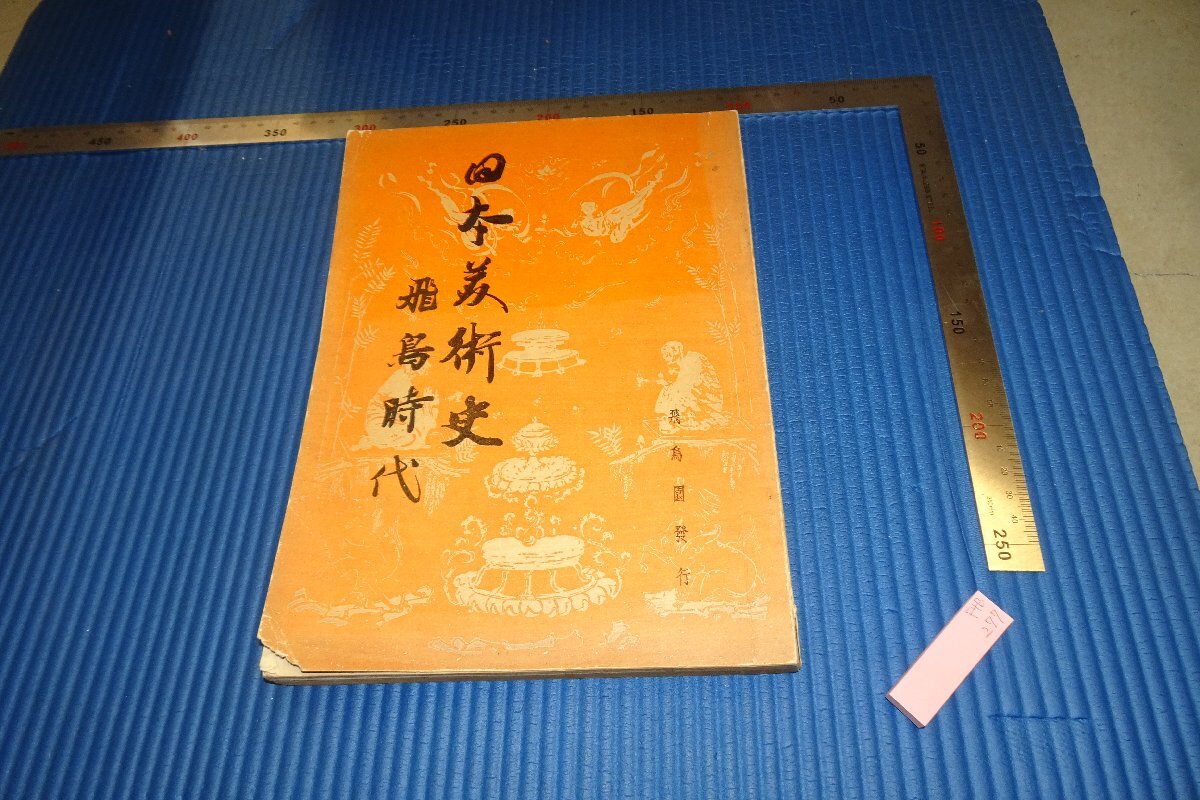 日本美術史
飛鳥時代
飛鳥園發行
450
400
350
300
250
200
150
100
50
50
100
150
200
250
277